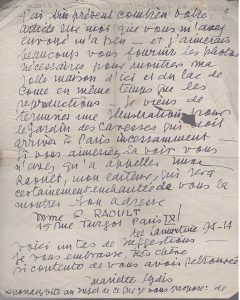 J'ai su présent combien votre
article sur moi que vous m'avez
envoyé m'a et j'aimerais
beaucoup vous fournir les photos
nécessaires pour montrer ma
jolie maison d'ici et du lac de
Come en même temps que les
reproductions Je viens de
terminer une illustration pour
le Jardin des Caresses qui doit
arriver à Paris incessamment
si vous aimeriez la voir vous
n'avez qu'à appeler Mme
Raoult, mon éditeur, qui sera
certainement enchantée de vous la
montrer. Son adresse
Mme R. RAOULT
15 rue Turgot Paris IX
tel Lamartine 94-14
voici un tas de suggestions
Je vous embrasse, très chère
si contente de vous avoir retrouvée
Mariette Lydis
vous propose: de